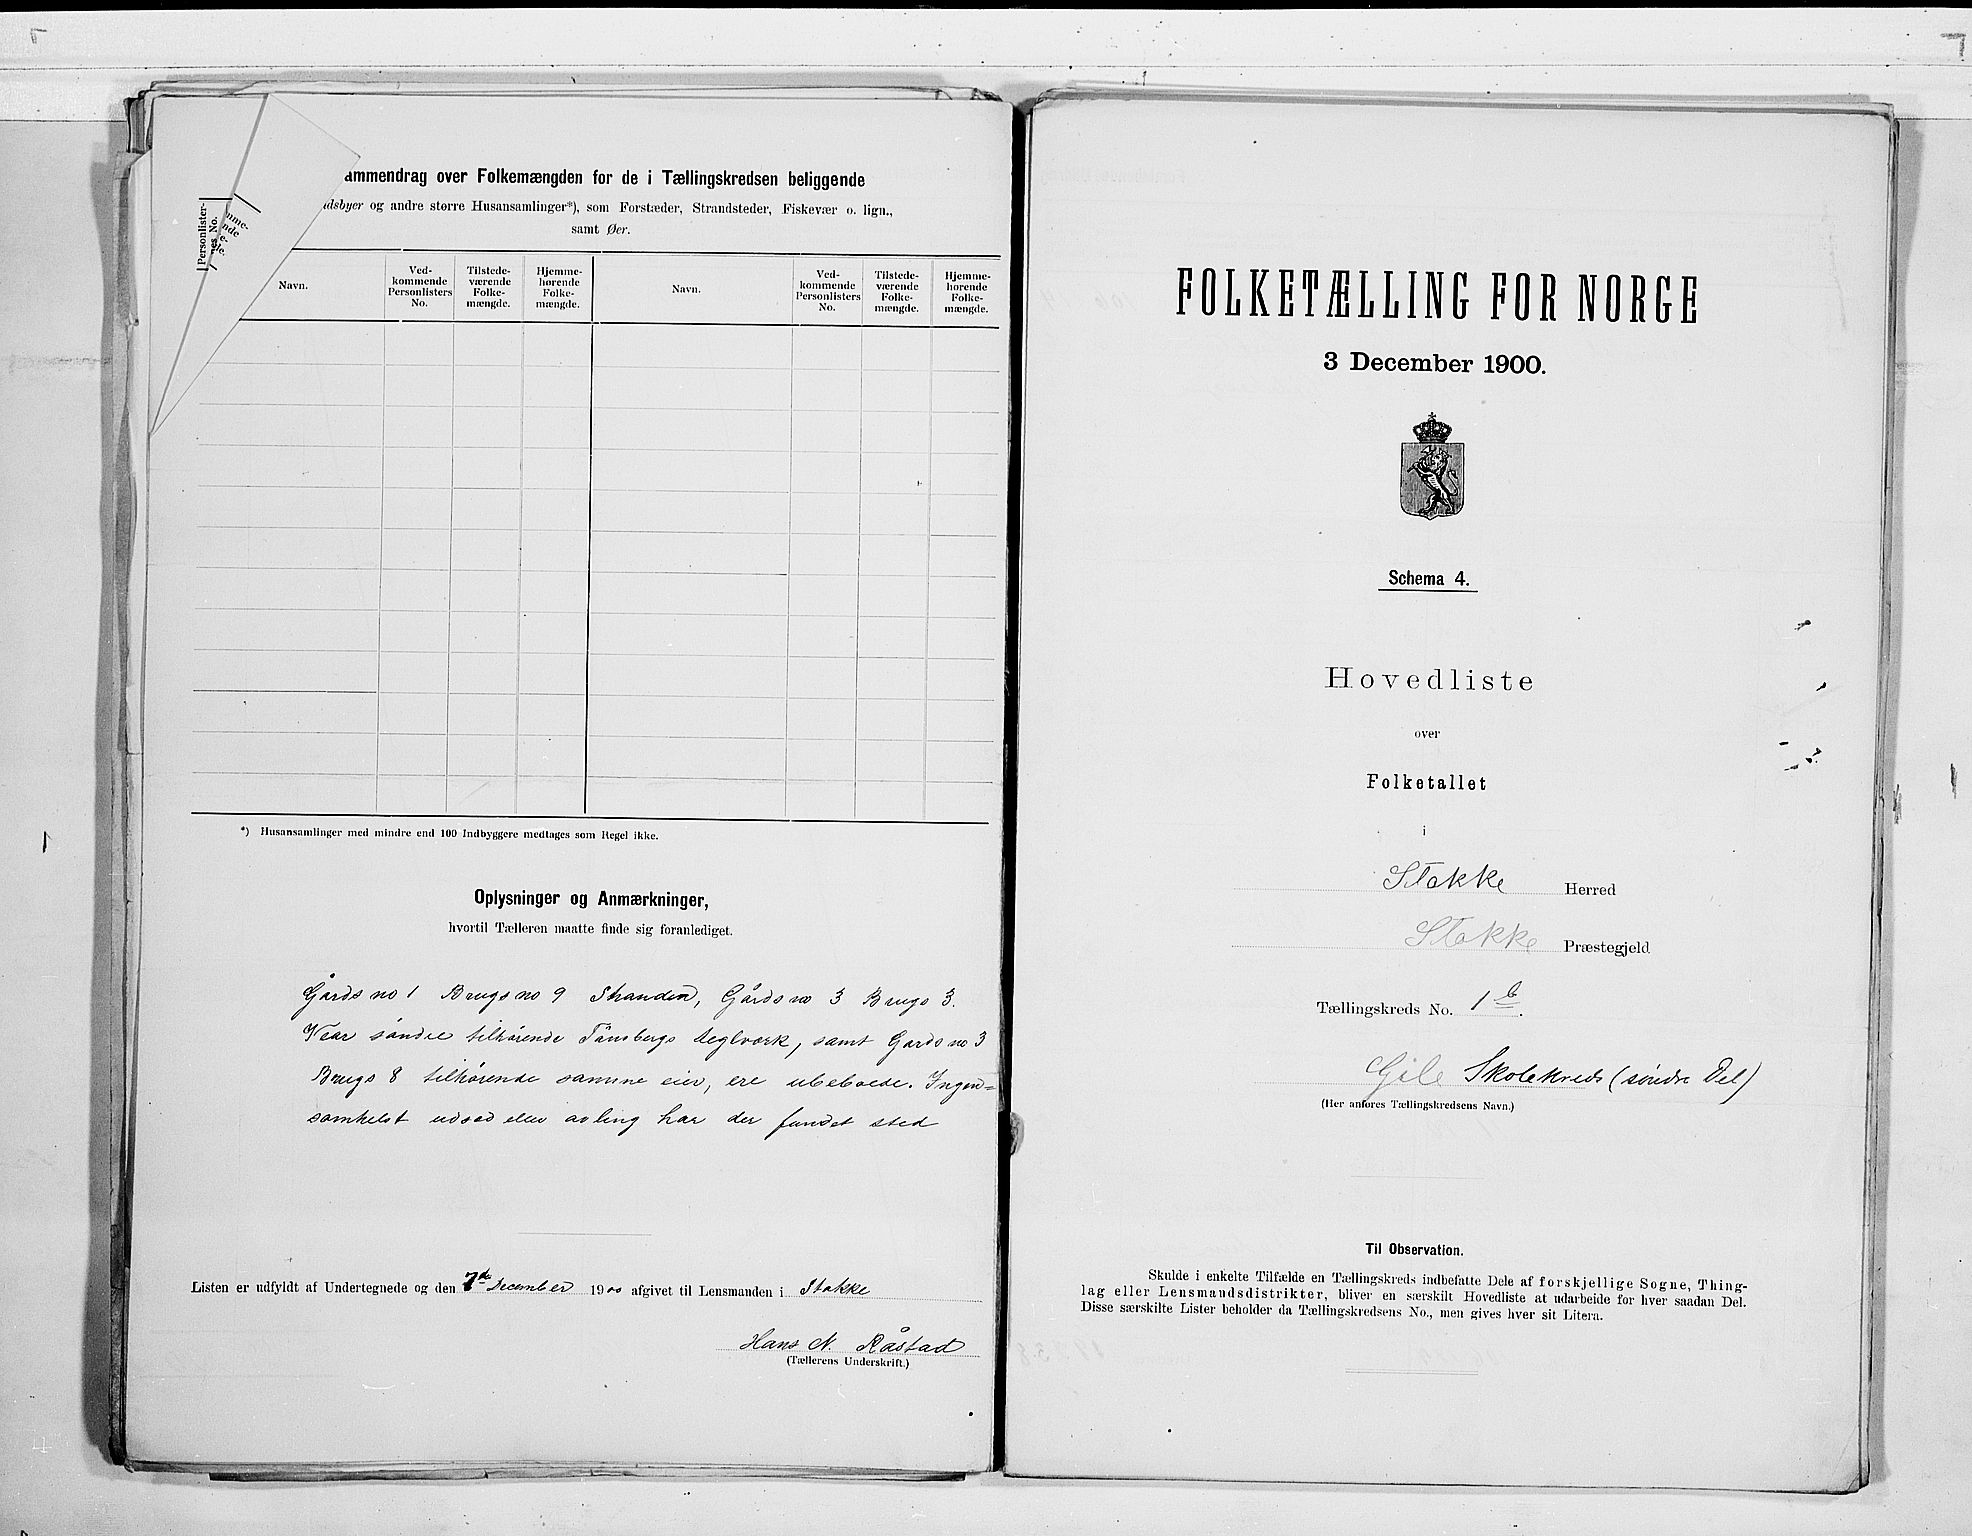 ammendrag over Folkemængden for de i Tællingskredsen beliggende
dsbyer og andre større Husansamlinger*), som Forstæder, Strandsteder, Fiskevær o. lign.,
samt Øer.
Personlister-
nes No.
Navn.
Ved-
kommende
Personlisters
No.
Tilstede-
værende
Folke-
mængde.
Hjemme-
hørende
Folke-
mængde.
Navn.
Ved-
kommende
Personlisters
No.
Tilstede-
værende
Folke-
mængde.
Hjemme-
hørende
Folke-
mængde.
*) Husansamlinger med mindre end 100 Indbyggere medtages som Regel ikke.
Oplysninger og Anmærkninger,
hvortil Tælleren maatte finde sig foranlediget.
Gårds no 1 Brugs no 9 Stranden, Gårds no 3 Brugs 3.
Vear søndre tilhørende Tönsbergs teglværk, samt Gards no 3
Brugs 8 tilhørende samme eier, ere ubeboede. Ingen=
somhelst udsæd eller avling har der fundet sted
Listen er udfyldt af Undertegnede og den 7de December 1900 afgivet til Lensmanden i Stokke
Hans N. Råstad
(Tællerens Underskrift.)
FOLKETÆLLING FOR NORGE
3 December 1900.
Schema 4.
Hovedliste
over
Folketallet
i
Stokke Herred
Stokke Præstegjeld
Tællingskreds No. 1 b.
Skolekreds (søndre Del)
(Her anføres Tællingskredsens Navn.)
Til Observation.
Skulde i enkelte Tilfælde en Tællingskreds indbefatte Dele af forskjellige Sogne, Thing-
lag eller Lensmandsdistrikter, bliver en særskilt Hovedliste at udarbeide for hver saadan Del.
Disse særskilte Lister beholder da Tællingskredsens No., men gives hver sit Litera.